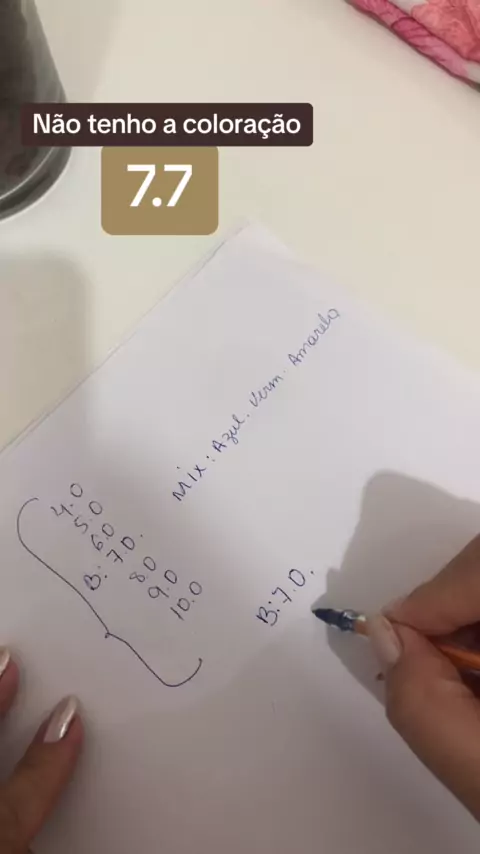 Não tenho a coloração
7.7
Mix: Azul. Verm. Amarelo
4.0
5.0
6.0
B: 7.0.
8.0
9.0
10.0
B: 7.0.